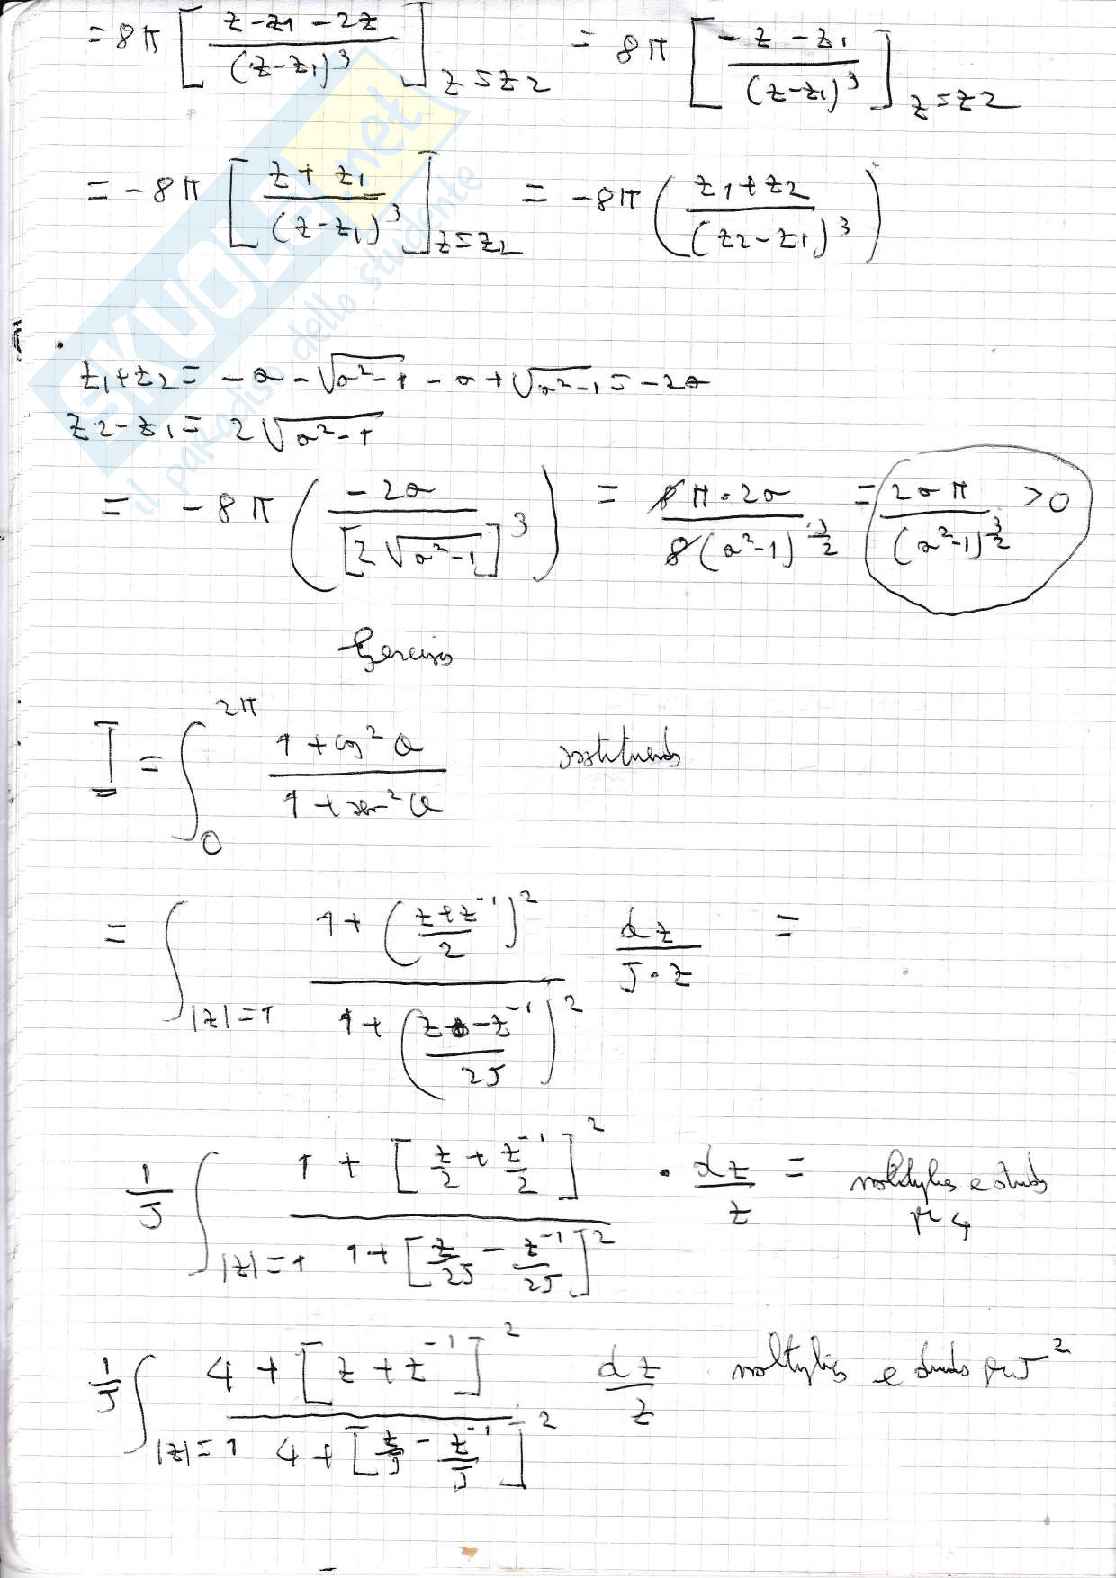 = 8π [ (z - z1 - 2z) / (z - z1)^3 ]_{z=z2} = 8π [ (-z - z1) / (z - z1)^3 ]_{z=z2}
= -8π [ (z + z1) / (z - z1)^3 ]_{z=z2} = -8π ( (z1 + z2) / (z2 - z1)^3 )
z1 + z2 = -a - √(a^2 - 1) - a + √(a^2 - 1) = -2a
z2 - z1 = 2√(a^2 - 1)
= -8π ( -2a / [2√(a^2 - 1)]^3 ) = 8π · 2a / 8(a^2 - 1)^{3/2} = 2aπ / (a^2 - 1)^{3/2} > 0
Esercizio
I = ∫_0^{2π} (1 + cos^2 θ) / (1 + sen^2 θ) sostituendo
= ∫_{|z|=1} (1 + ((z + z^{-1}) / 2)^2) / (1 + ((z - z^{-1}) / 2J)^2) dz / J·z =
1/J ∫_{|z|=1} (1 + [z/2 + z^{-1}/2]^2) / (1 + [z/2J - z^{-1}/2J]^2) · dz/z = moltiplico e divido
per 4
1/J ∫_{|z|=1} (4 + [z + z^{-1}]^2) / (4 + [z/J - z^{-1}/J]^2) dz/z moltiplico e divido per J^2
SKUOLA.net
il paradiso dello studente